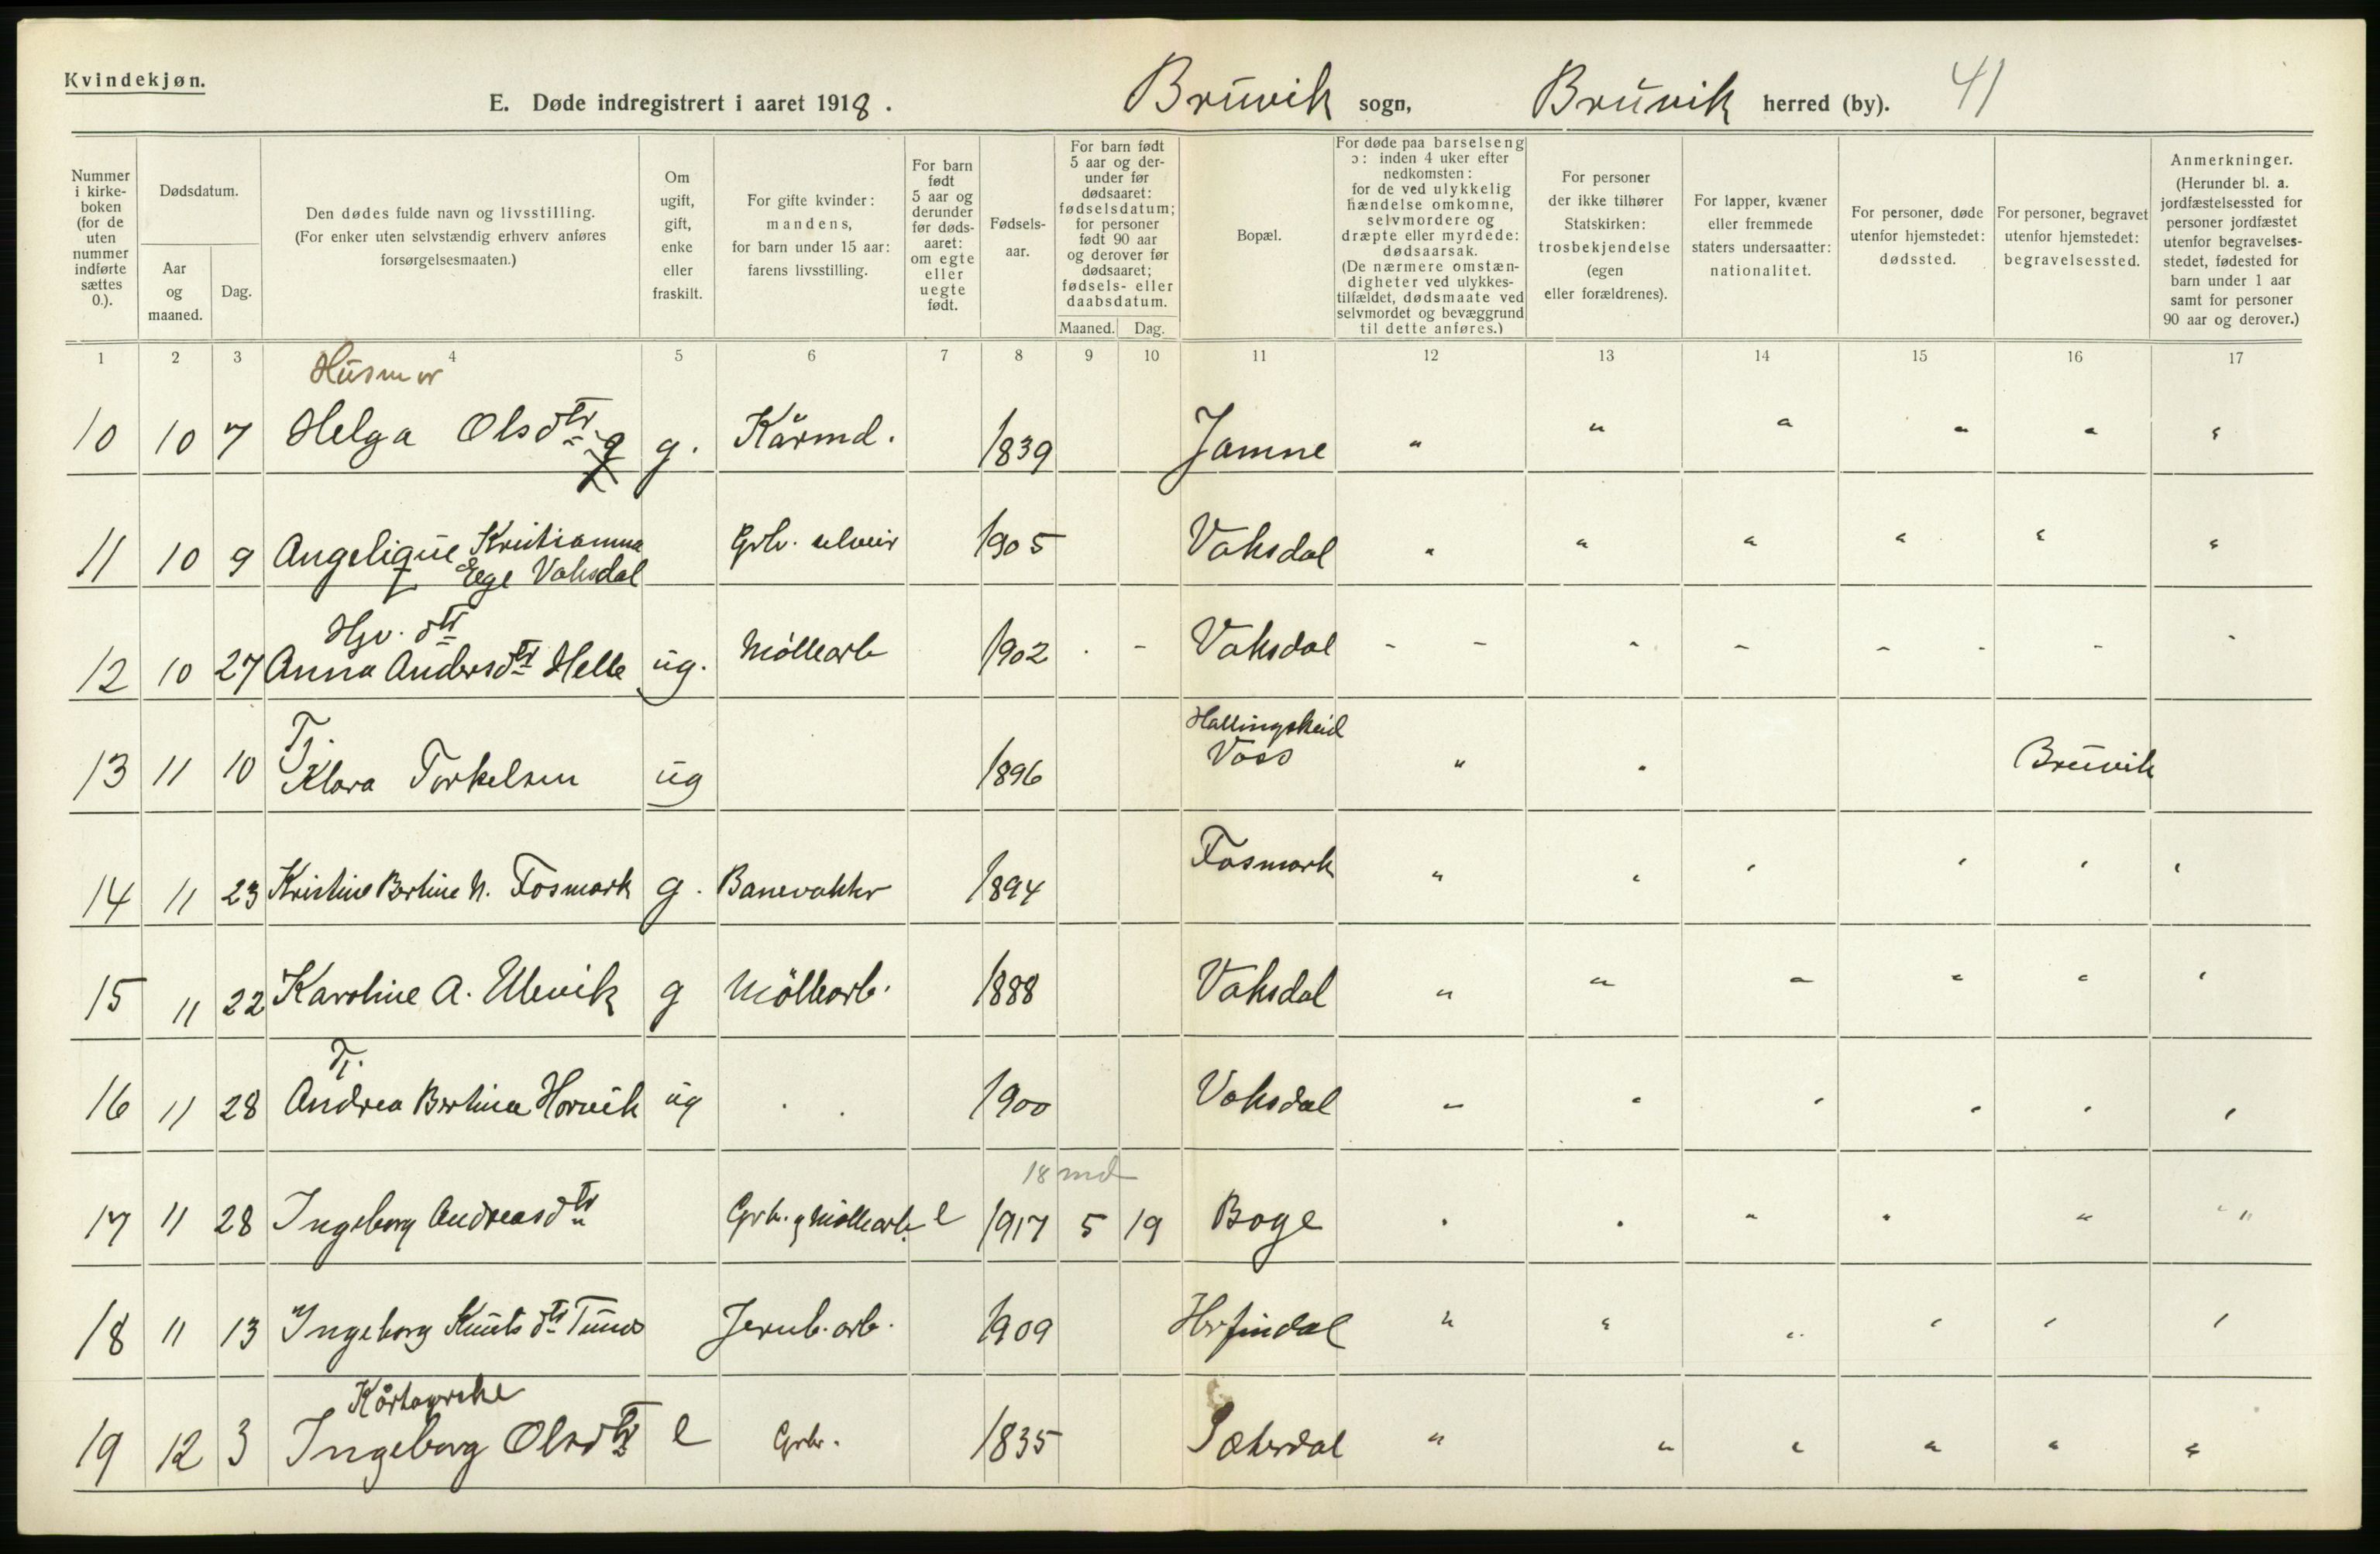 Kvindekjøn.
E. Døde indregistrert i aaret 1918. Bruvik sogn, Bruvik herred (by). 41
Nummer i kirkeboken (for de uten nummer indførte sættes 0.).
Dødsdatum.
Aar og maaned.
Dag.
Den dødes fulde navn og livsstilling. (For enker uten selvstændig erhverv anføres forsørgelsesmaaten.)
Om ugift, gift, enke eller fraskilt.
For gifte kvinder: mandens, for barn under 15 aar: farens livsstilling.
For barn født 5 aar og derunder før dødsaaret: om egte eller uegte født.
Fødselsaar.
For barn født 5 aar og derunder før dødsaaret: fødselsdatum; for personer født 90 aar og derover før dødsaaret; fødsels- eller daabsdatum.
Maaned. Dag.
Bopæl.
For døde paa barselseng ɔ: inden 4 uker efter nedkomsten: for de ved ulykkelig hændelse omkomne, selvmordere og dræpte eller myrdede: dødsaarsak. (De nærmere omstændigheter ved ulykkestilfældet, dødsmaate ved selvmordet og bevæggrund til dette anføres.)
For personer der ikke tilhører Statskirken: trosbekjendelse (egen eller forældrenes).
For lapper, kvæner eller fremmede staters undersaatter: nationalitet.
For personer, døde utenfor hjemstedet: dødssted.
For personer, begravet utenfor hjemstedet: begravelsessted.
Anmerkninger. (Herunder bl. a. jordfæstelsessted for personer jordfæstet utenfor begravelsesstedet, fødested for barn under 1 aar samt for personer 90 aar og derover.)
1 2 3 4 5 6 7 8 9 10 11 12 13 14 15 16 17
Husmor
10 10 7 Helga Olsdtr g. Kårmd. 1839 Jamne " " " " " "
11 10 9 Angelique Kristiamna Ege Vaksdal Grb. 1905 Vaksdal " " " " " "
Hjv. dtr
12 10 27 Anna Andersdtr Helle ug. Møllearb 1902 . - Vaksdal - - - - - - - -
Tj.
Hallingskeid
13 11 10 Klara Torkelsen ug 1896 Voss " . Bruvik
14 11 23 Kristine Bertine N. Fosmark g. Banevokter 1894 Fosmark " " " " " "
15 11 22 Karoline A. Ulevik g Møllearb. 1888 Vaksdal " " " " " "
Tj.
16 11 28 Andrea Bertina Horvik ug . . 1900 Vaksdal " " " " " "
18 md
17 11 28 Ingeborg Andreasdtr Grb. og Møllearb. e 1917 5 19 Boge . . " " " "
18 11 13 Ingeborg Knutsdtr Tunes Jernb. arb. 1909 Herfindal " " " " " "
Kårtagerske
19 12 3 Ingeborg Olsdtr e Grbr. 1835 Sækerdal " " " " " "